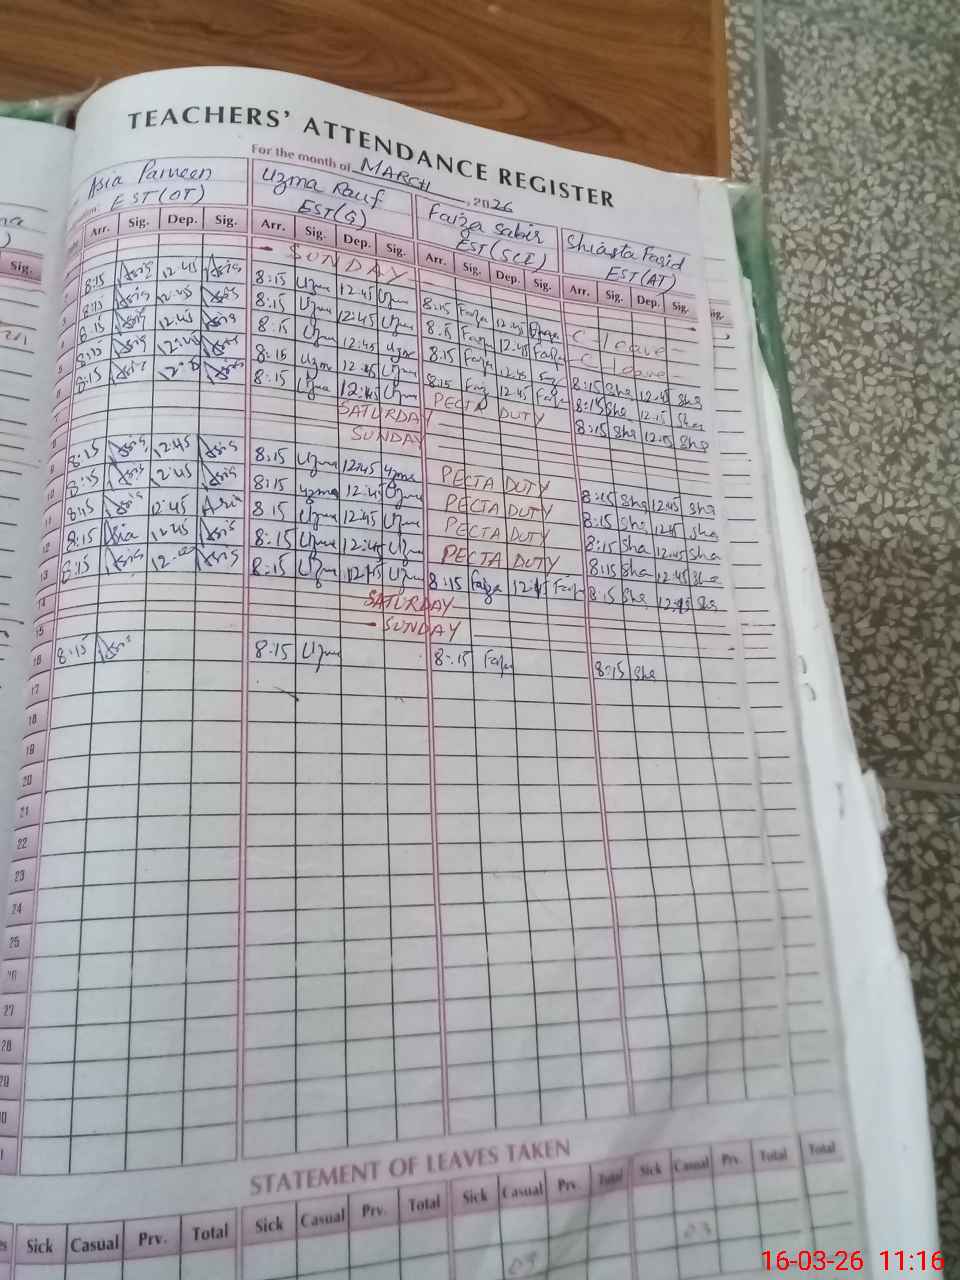 TEACHERS' ATTENDANCE REGISTER
For the month of MARCH, 2026
Asia Parveen Uzma Rauf Faiza Sabir Shiasta Farid
EST(OT) EST(G) EST(SCI) EST(AT)
Arr. Sig. Dep. Sig. Arr. Sig. Dep. Sig. Arr. Sig. Dep. Sig. Arr. Sig. Dep. Sig.
SUNDAY
8:15 Asia 12:45 Asia 8:15 Uzma 12:45 Uzma 8:15 Faiza 12:45 C leave
8:15 Asia 12:45 Asia 8:15 Uzma 12:45 Uzma 8:15 Faiza 12:45 Faiza C leave
8:15 Asia 12:45 Asia 8:15 Uzma 12:45 Uzma 8:15 Faiza 12:45 8:15 Sha 12:45 Sha
8:15 Asia 12:45 Asia 8:15 Uzma 12:45 Uzma 8:15 Faiza 12:45 Faiza 8:15 Sha 12:15 Sha
8:15 Asia Asia 8:15 Uzma 12:45 Uzma PECTA DUTY 8:15 Sha 12:15 Sha
SATURDAY
SUNDAY
8:15 Asia 12:45 Asia 8:15 Uzma 12:45 Uzma PECTA DUTY 8:15 Sha 12:45 Sha
8:15 Asia 12:45 Asia 8:15 Uzma 12:45 Uzma PECTA DUTY 8:15 Sha 12:45 Sha
8:15 Asia 12:45 Asia 8:15 Uzma 12:45 Uzma PECTA DUTY 8:15 Sha 12:45 Sha
8:15 Asia 12:45 Asia 8:15 Uzma 12:45 Uzma PECTA DUTY 8:15 Sha 12:45 Sha
13 8:15 Asia Asia 8:15 Uzma 12:45 Uzma 8:15 Faiza 12:45 Faiza 8:15 Sha 12:45 Sha
14 SATURDAY
15 SUNDAY
16 8:15 Asia 8:15 Uzma 8:15 Faiza 8:15 Sha
17
18
19
20
21
22
23
24
25
26
27
28
STATEMENT OF LEAVES TAKEN
Sick Casual Prv. Total Sick Casual Prv. Total Sick Casual Prv. Total Sick Casual Prv. Total Total
03
16-03-26 11:16